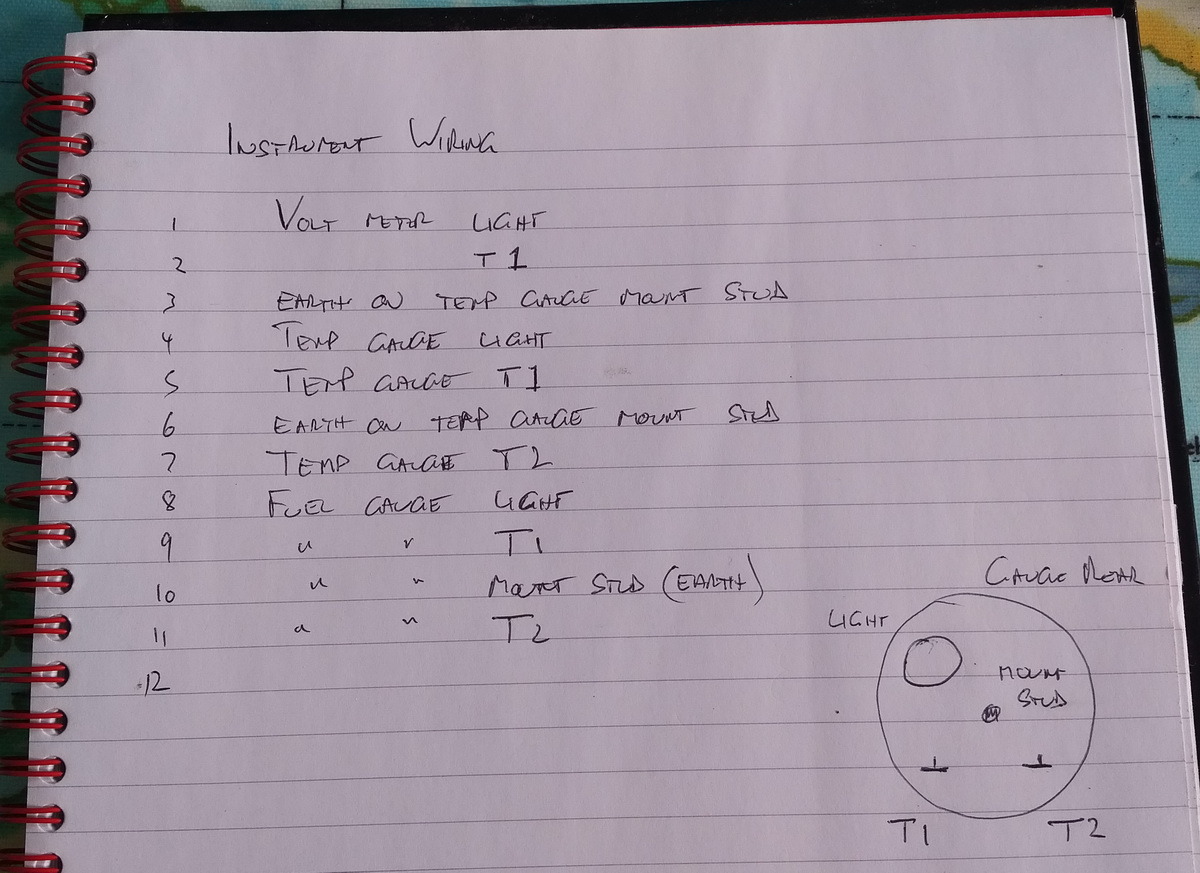 INSTRUMENT WIRING
1 VOLT METER LIGHT
2 T1
3 EARTH ON TEMP GAUGE MOUNT STUD
4 TEMP GAUGE LIGHT
5 TEMP GAUGE T1
6 EARTH ON TEMP GAUGE MOUNT STUD
7 TEMP GAUGE T2
8 FUEL GAUGE LIGHT
9 " " T1
10 " " MOUNT STUD (EARTH)
11 " " T2
12
GAUGE REAR
LIGHT
MOUNT
STUD
T1 T2